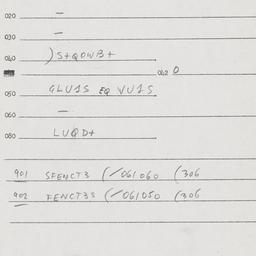 020 —
030 —
040 ) S+QDWB+
042 0
050 GLU1S EQ VU1S
060 —
080 LUQD+
901 SFENCT3 (/061060 (306
902 FENCT3S (/061050 (306